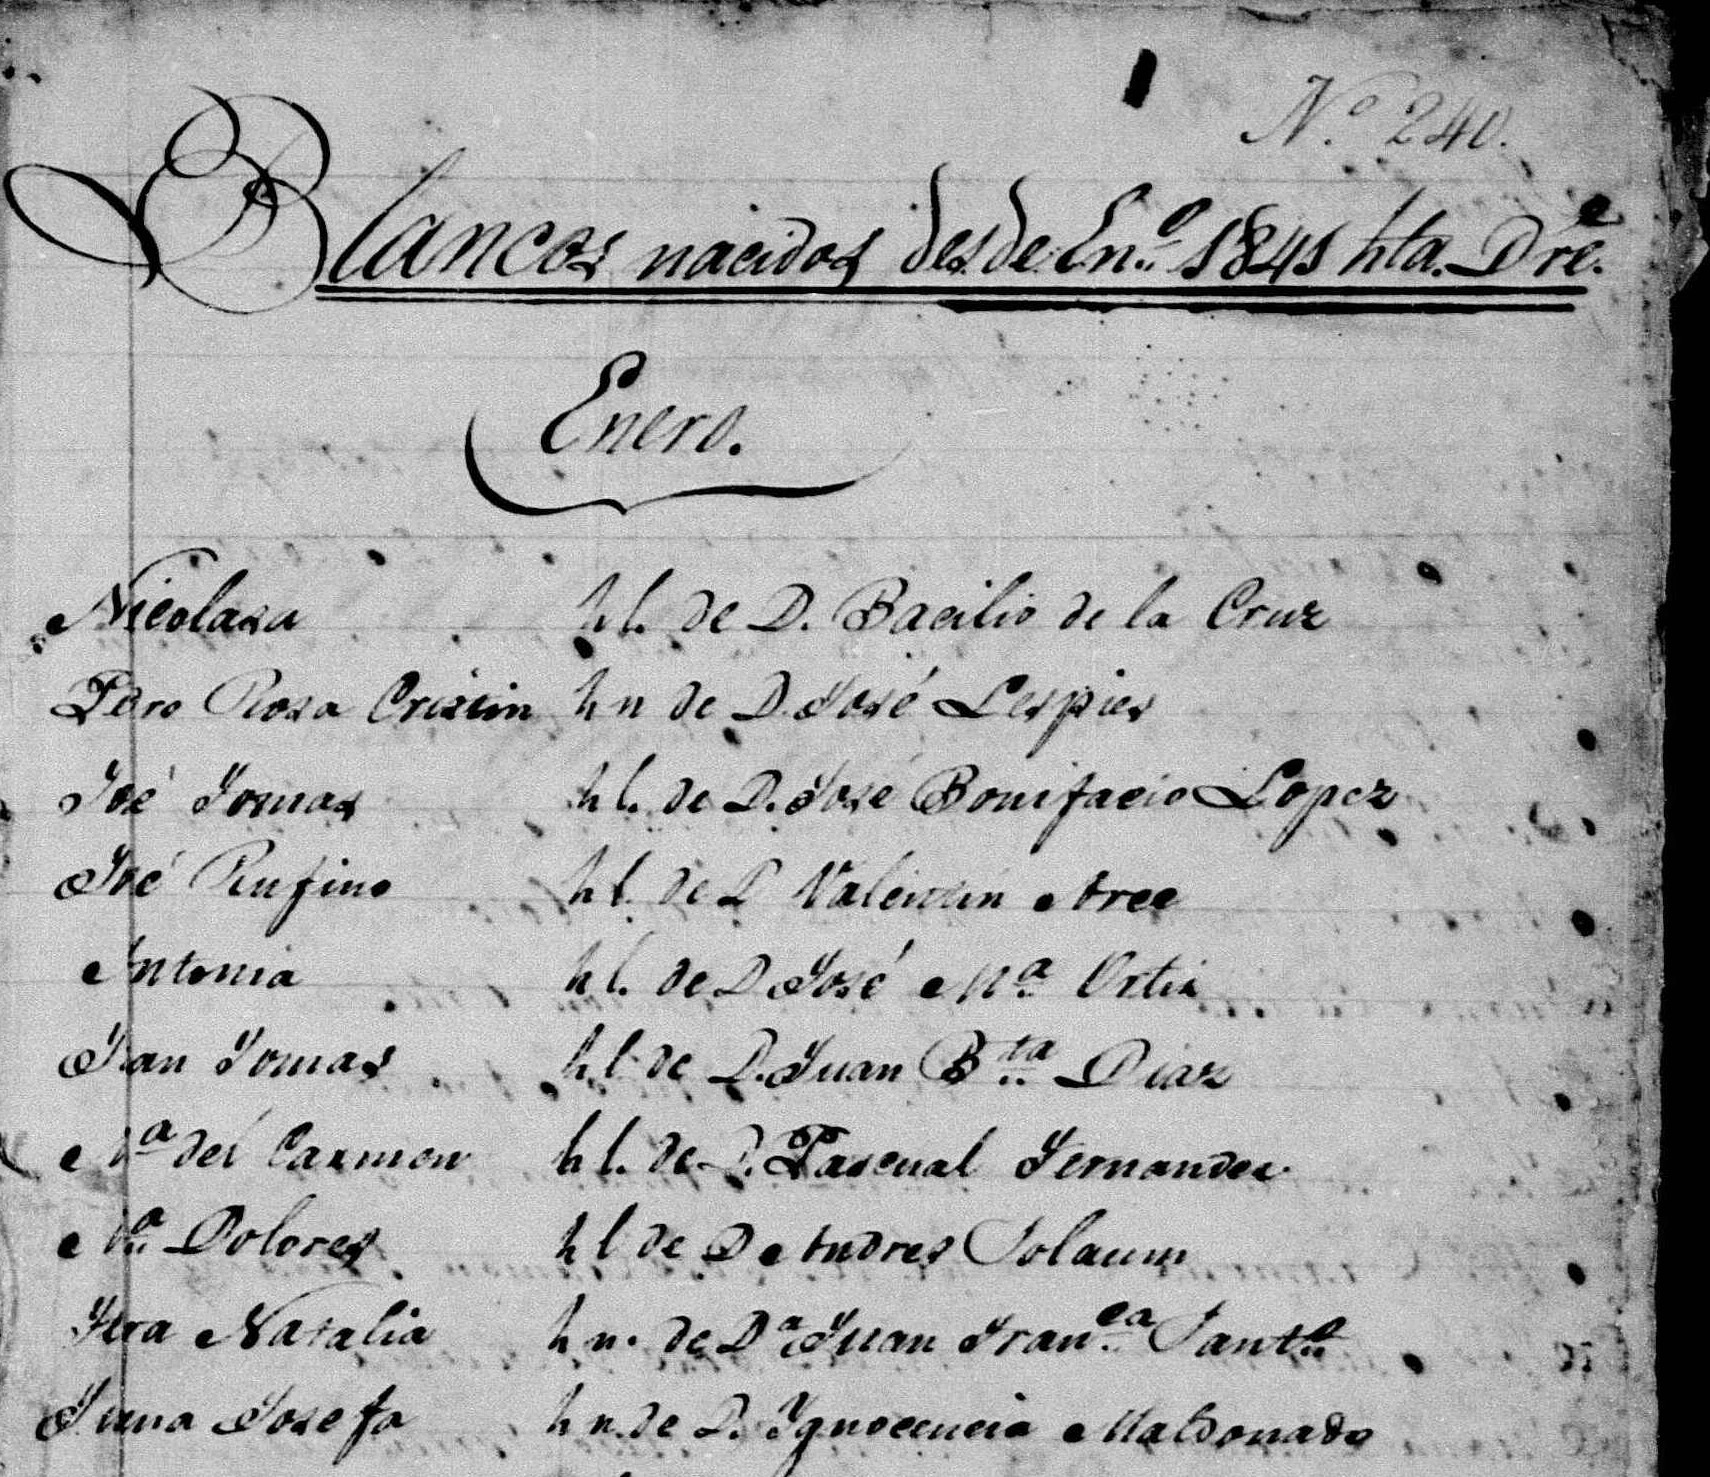 Nº 240.
Blancos nacidos desde En.º 1841 hta. Dre.e
Enero.
Nicolasa hl. de D. Bacilio de la Cruz
Pedro Rosa Cristin hn de D. José Lespier
José Tomas hl. de D. José Bonifacio Lopez
José Rufino hl. de D Valentin Arce
Antonia hl. de D José Mª Ortiz
Juan Tomas hl de D. Juan Bta Diaz
Mª del Carmen hl. de D. Pascual Fernandez
Mª Dolores hl de D Andres Solaum
Natalia hn. de Dª Juan Franca Santo
Juana Josefa hn. de D. Ygnocencia Maldonado